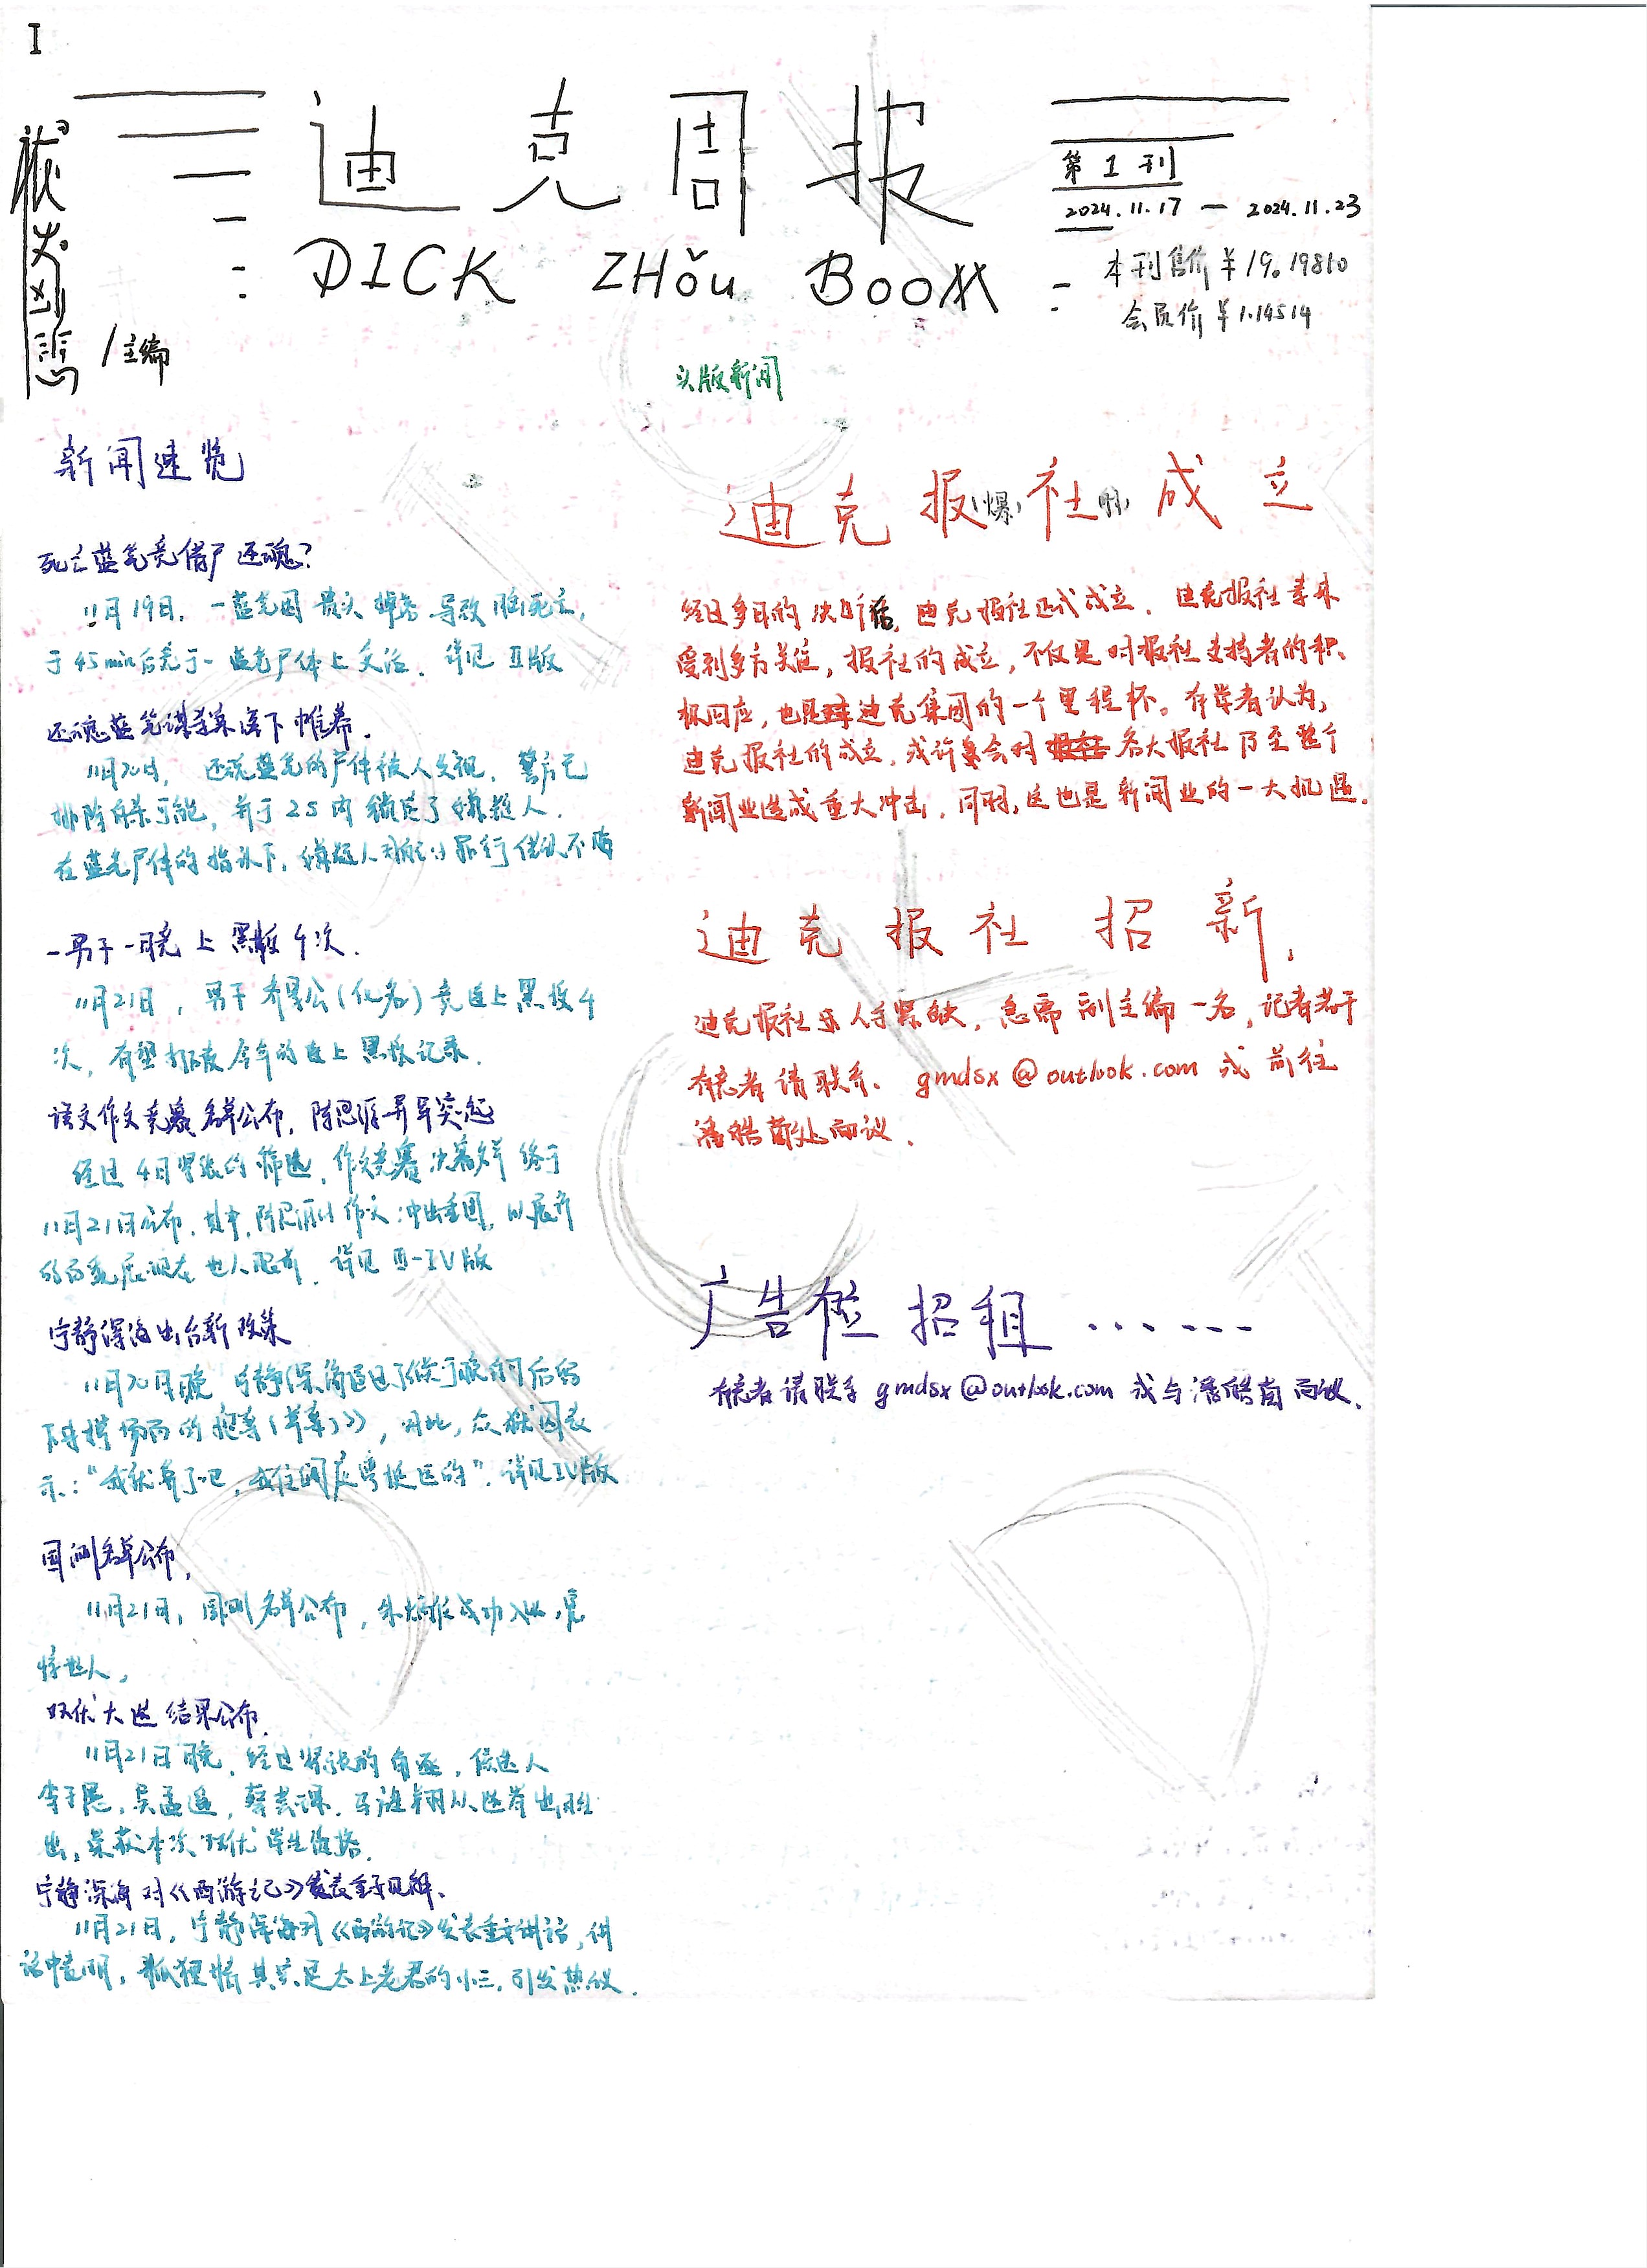 I
迪克周报
DICK ZHǒu BOOM
第1刊
2024.11.17 — 2024.11.23
本刊售价¥19.19810
会员价¥1.14514
/主编
新闻速览
死亡蓝笔竟借尸还魂?
11月19日,一蓝笔因贵头掉落导致脑死亡,
于45min后竟于一蓝笔尸体上复活.详见II版
还魂蓝笔谋杀案落下帷幕.
11月20日,还魂蓝笔的尸体被人发现.警方已
排除自杀可能,并于25内锁定了嫌疑人.
在蓝笔尸体的指认下,嫌疑人对罪行供认不讳
一男子一晚上黑板4次.
11月21日,男子(化名)竟连上黑板4
次,有望打破今年的连上黑板记录.
语文作文竞赛名单公布,陈思涯异军突起
经过4日紧张的筛选,作文竞赛决赛名单终于
11月21日公布.其中,作文冲出重围,以
展现在世人眼前.详见III-IV版
宁静深海出台新政策
11月20日晚宁静深海通过了
下去撑场面的提案(草案)》,对此,众
示:“我就算了吧,我住的".详见IV版
周测名单公布,
11月21日,周测名单公布,成功入
惊世人,
双优大选结果公布.
11月21日晚,经过紧张的角逐,候选人
李子恩,吴孟遥,从选举中胜
出,荣获本次双优学生资格.
宁静深海对《西游记》发表重要见解.
11月21日,宁静深海对《西游记》发表重要讲话,讲
话中表明,狐狸精其实是太上老君的小三.引发热议.
头版新闻
迪克报(爆)社(明)成立
经过多日的决断,迪克报社正式成立.迪克报社素来
受到多方关注,报社的成立,不仅是对报社支持者的积
极回应,也是迪克集团的一个里程杯。有学者认为,
迪克报社的成立,或许会对各大报社乃至整个
新闻业造成重大冲击,同时,这也是新闻业的一大机遇.
迪克报社招新,
迪克报社人手紧缺,急需副主编一名,记者若干
有意者请联系、gmdsx@outlook.com或前往
潘皓南处面议.
广告位招租......
有意者请联系gmdsx@outlook.com或与潘皓南面议.